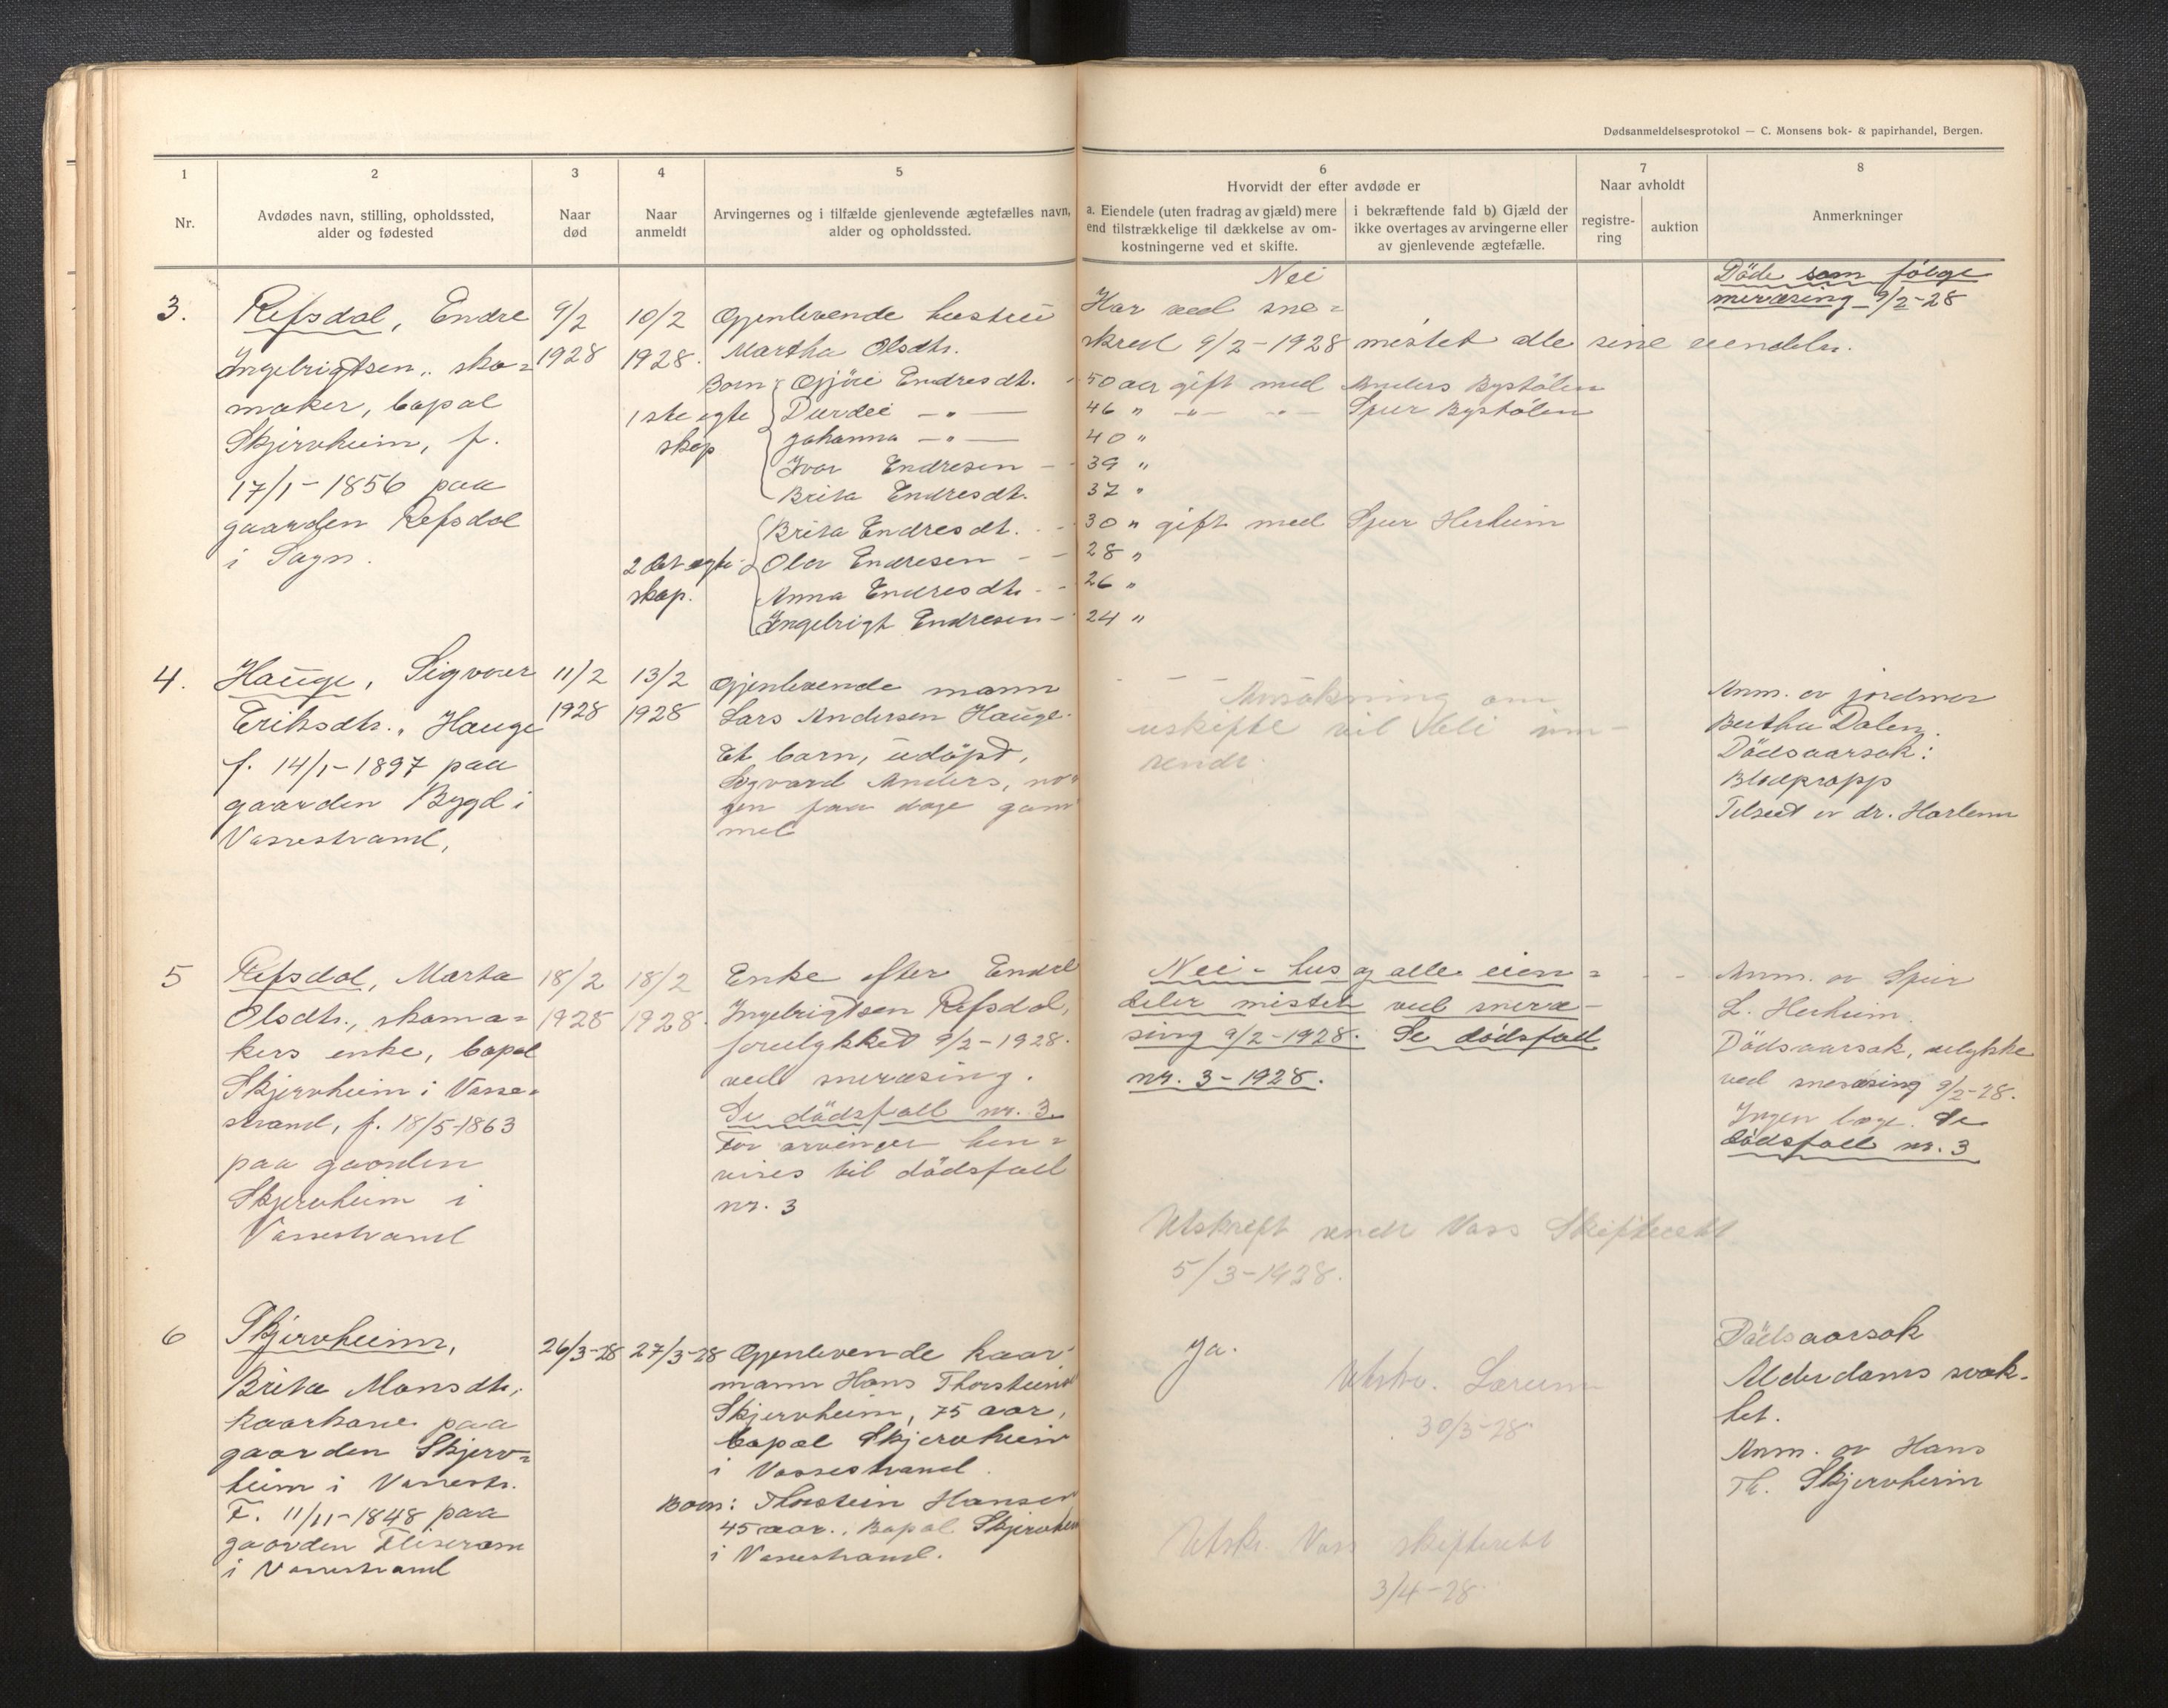 Dødsanmeldelsesprotokol — C. Monsens bok- & papirhandel, Bergen.
1
Nr.
2
Avdødes navn, stilling, opholdssted,
alder og fødested
3
Naar
død
4
Naar
anmeldt
5
Arvingernes og i tilfælde gjenlevende ægtefælles navn,
alder og opholdssted.
6
Hvorvidt der efter avdøde er
a. Eiendele (uten fradrag av gjæld) mere
end tilstrækkelige til dækkelse av om-
kostningerne ved et skifte.
i bekræftende fald b) Gjæld der
ikke overtages av arvingerne eller
av gjenlevende ægtefælle.
7
Naar avholdt
registre-
ring
auktion
8
Anmerkninger
3.
Refsdal, Endre
Ingebrigtsen, sko=
maker, bopæl
Skjervheim, f.
17/1-1856 paa
gaarden Refsdal
i Sogn.
9/2
1928
10/2
1928.
Gjenlevende hustru
Martha Olsdtr.
Born
1ste egte
skap
Gjöri Endresdt.
Durdei -"-
Johanna -"-
Ivar Endresen -
Brita Endresdt.
2det egte
skap.
Brita Endresdt. -
Olav Endresen - -
Anna Endresdtr. - -
Ingebrigt Endresen -
Nei
Har ved sne=
skred 9/2-1928 mistet alle sine eiendeler.
50 aar gift med Anders Bystölen
46 " -"- -"- Sjur Bystölen
40 "
39 "
37 "
30 " gift med Sjur Herheim
28 "
26 "
24 "
Döde som følge
sneræsing 9/2-28
4.
Hauge, Sigvor
Eriksdtr., Hauge
f. 14/1-1897 paa
gaarden Bygd i
Vossestrand,
11/2
1928
13/2
1928
Gjenlevende mann
Lars Andersen Hauge.
Et barn, udöpd,
Sigvard Anders, no=
gen faa dage gam
mel
Ansökning om
uskifte vil bli inn-
sendt.
Anm. av jordmor
Bertha Dalen.
Dödsaarsak:
Blodpropp
Tilseet av dr. Harlem
5
Refsdal, Marta
Olsdtr., skoma=
kers enke, bopæl
Skjervheim i Vosse=
strand, f. 18/5-1863
paa gaarden
Skjervheim i
Vossestrand
18/2
1928
18/2
1928.
Enke efter Endre
Ingebrigtsen Refsdal,
forulykket 9/2-1928.
ved sneræsing.
Se dödsfall nr. 3.
For arvinger hen=
vises til dödsfall
nr. 3
Nei - hus og alle eien=
deler mistet ved sneræ-
sing 9/2-1928. Se dödsfall
nr. 3-1928.
Utskrift sendt Voss Skifterett
5/3-1928.
Anm. av Sjur
L. Herheim.
Dödsaarsak, ulykke
ved sneræsing 9/2-28.
Ingen læge. Se
dödsfall nr. 3
6
Skjervheim,
Brita Monsdtr,
kaarkone paa
gaarden Skjerv=
heim i Vossestr.
F. 11/11-1848 paa
gaarden
i Vossestrand
26/3-28
27/3-28
Gjenlevende kaar
mann Hans Thorsteins
Skjervheim, 75 aar,
bopæl Skjervheim
i Vossestrand.
Born: Thorstein Hansen
45 aar., Bopæl Skjervheim
i Vossestrand.
Ja.
Utskr. Lærum
30/3-28
Utskr. Voss skifterett
3/4-28.
Dödsaarsak
Alderdoms svak-
het.
Anm. av Hans
Th. Skjervheim